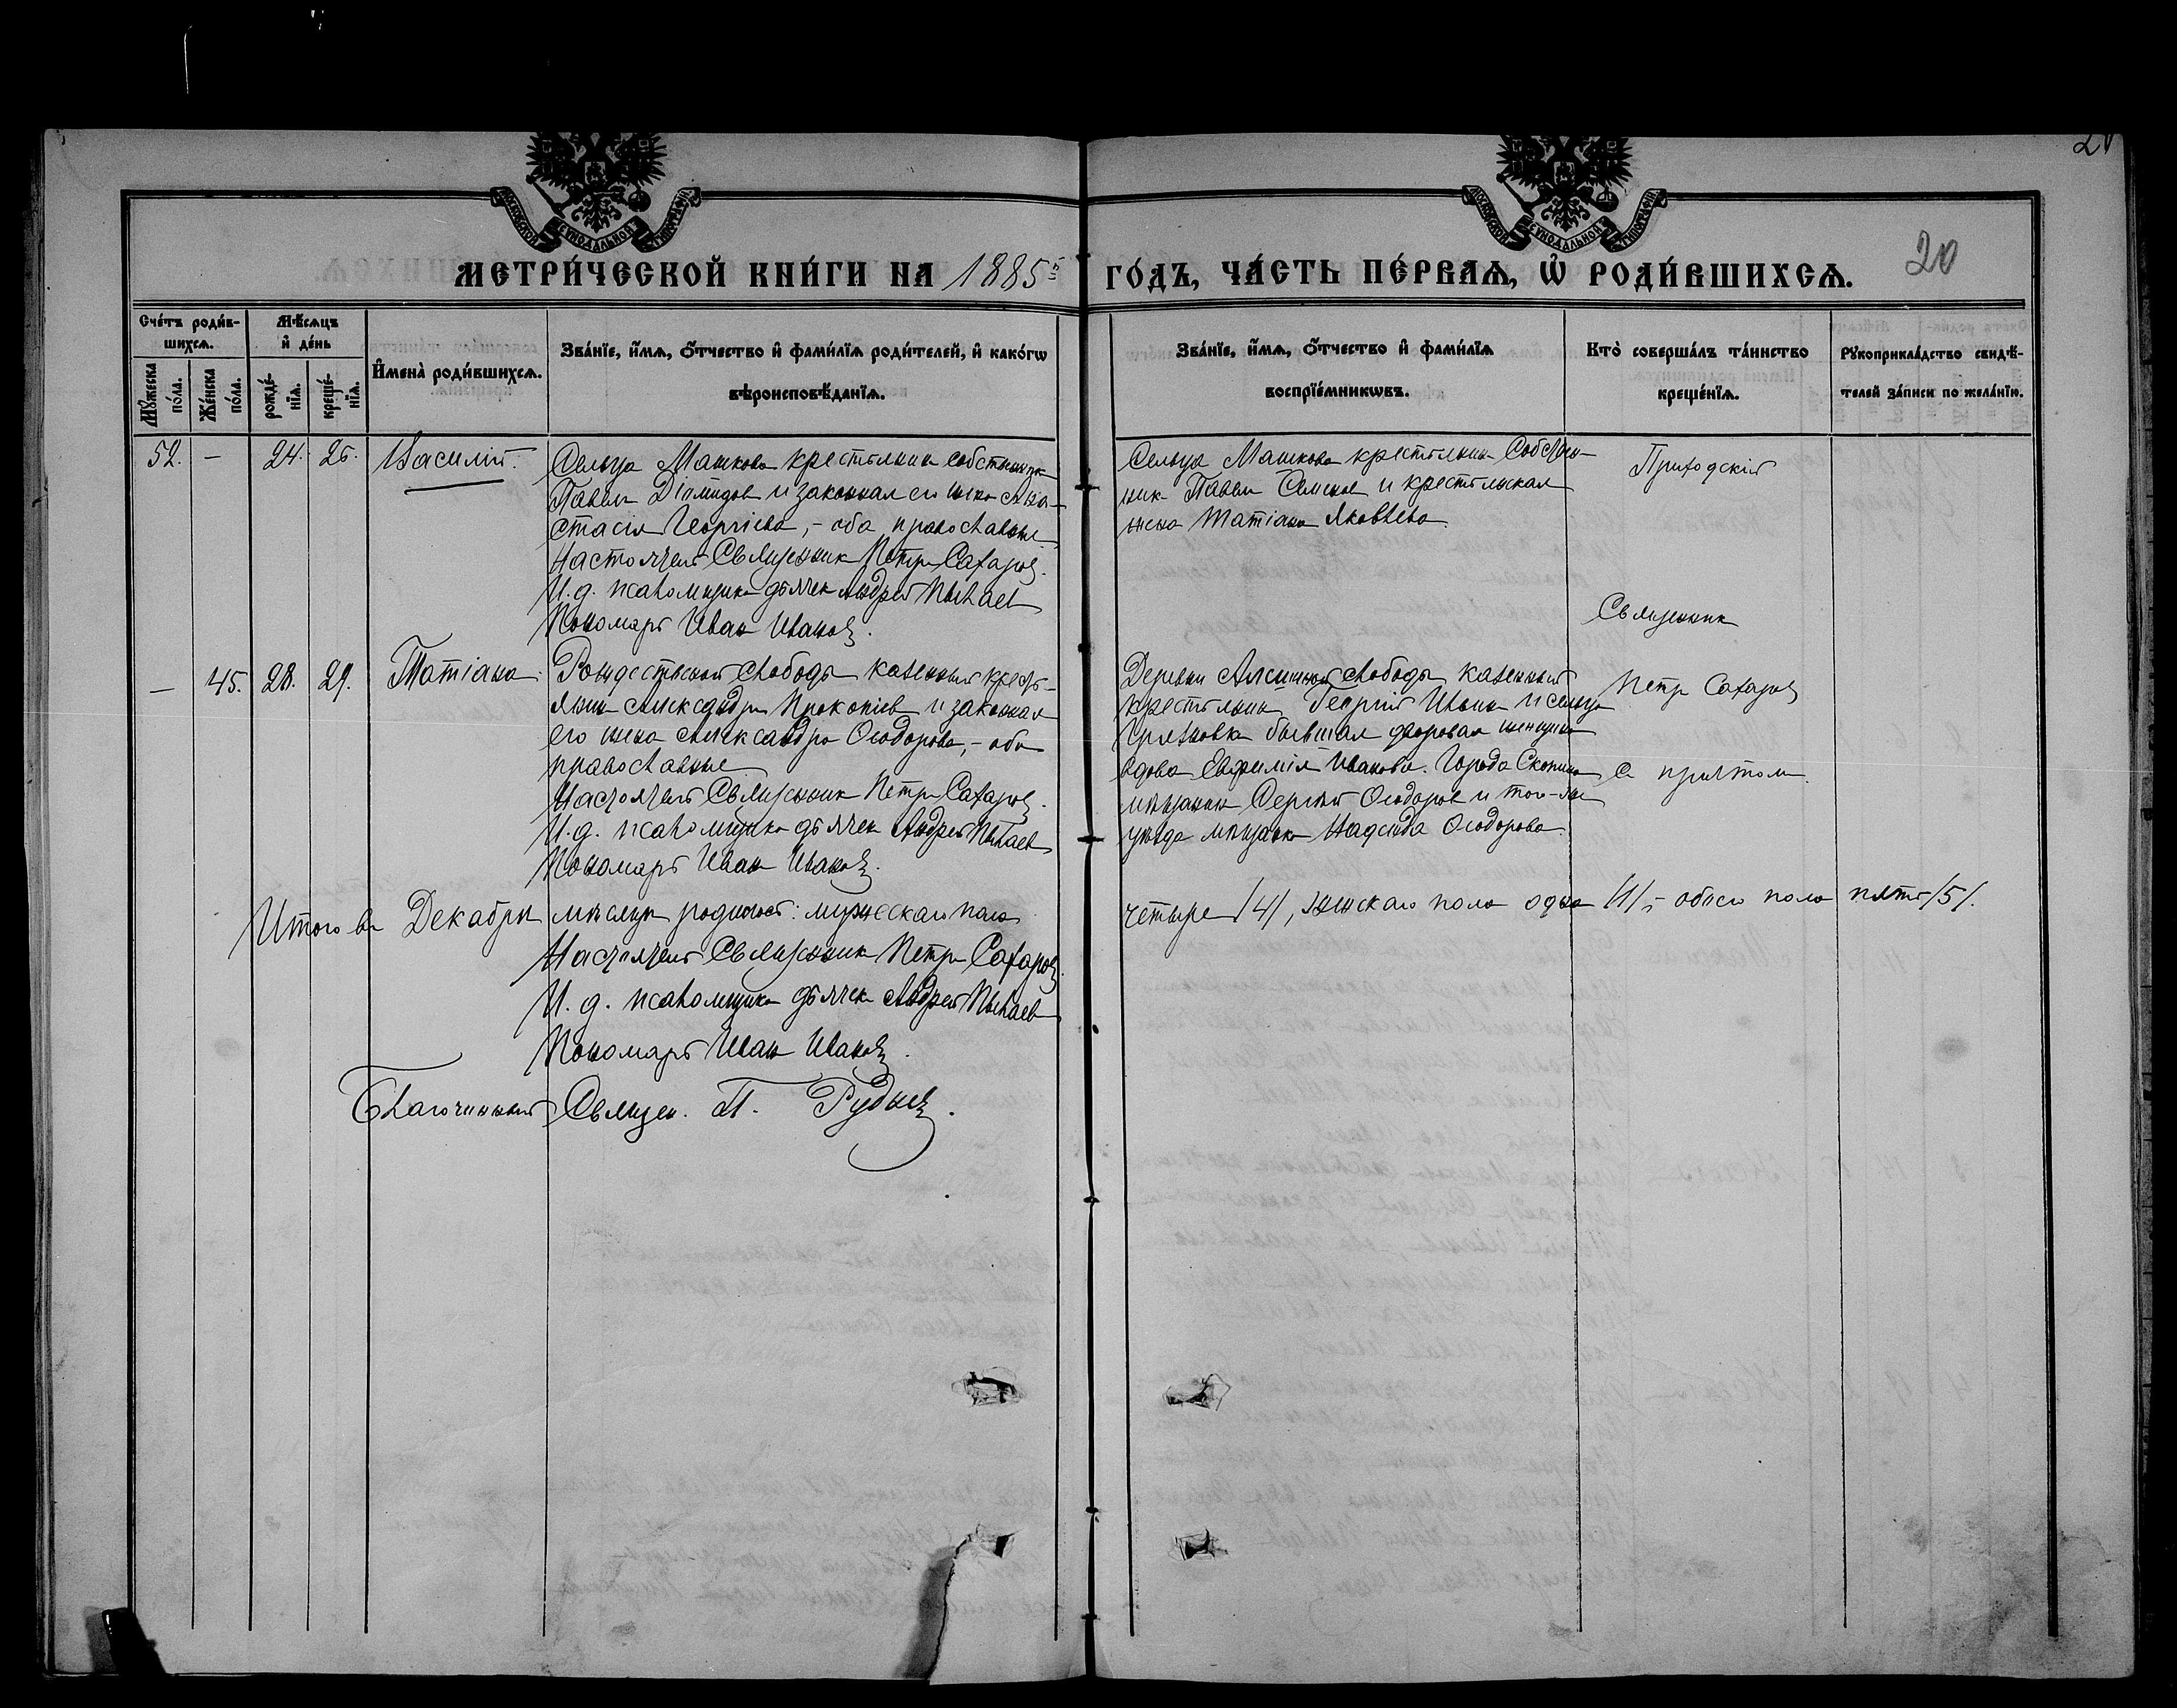 20
МОСКОВСКОЙ СѴНОДАЛЬНОЙ ТИПОГРАФІИ
МОСКОВСКОЙ СѴНОДАЛЬНОЙ ТИПОГРАФІИ
МЕТРИ́ЧЕСКОЙ КНИ́ГИ НА 1885 ГО́ДЪ, ЧА́СТЬ ПЕ́РВАѦ, Ѡ҆ РОДИ́ВШИХСѦ. 20
Сче́тъ роди́в-
шихсѧ.
Мꙋ́жеска по́ла.
Же́нска по́ла.
Мѣ́сѧцъ
и҆ де́нь
рожде́-
нїѧ.
креще́-
нїѧ.
И҆мена̀ роди́вшихсѧ.
Зва́нїе, и҆́мѧ, ѻ҆́тчество и҆ фами́лїѧ роди́телей, и҆ како́гѡ
вѣроисповѣ́данїѧ.
Зва́нїе, и҆́мѧ, ѻ҆́тчество и҆ фами́лїѧ
воспрїе́мникѡвъ.
Кто̀ соверша́лъ та́инство
креще́нїѧ.
Рꙋкоприкла́дство свидѣ́-
телей за́писи по жела́нїю.
52. — 24. 25. Василій.
Сельца Машкова крестьянин собственник
Павел Діамидов и законная его жена Ана-
стасія Георгіева, - оба православные.
Настоятель Священник Петр Сахаров.
И. д. псаломщика дьячек Андрей
Пономарь Иван Иванов.
Сельца Машкова крестьянин Собствен-
ник Павел Семенов и крестьянская
жена Татіана Яковлева.
Приходскій
Священник
Петр Сахаров
С причтом.
— 45. 28. 29. Татіана.
Рождественой слободы казенный кресть-
янин Александр Прокопіев и законная
его жена Александра Ѳеодорова, - оба
православные
Настоятель Священник Петр Сахаров.
И. д. псаломщика дьячек Андрей
Пономарь Иван Иванов.
Деревни слободы казенный
крестьянин Георгій Ильин и сельца
бывшая дворовая женщина
вдова Евфимія Иванова. Города Скопина
мѣщанин Сергій Ѳеодоров и того-же
уѣзда мѣщанка Надежда Ѳеодорова.
Итого в Декабрѣ мѣсяцѣ родилось: мужескаго пола четыре /4/, женскаго пола одна /1/, - обоего пола пять /5/.
Настоятель Священник Петр Сахаров.
И. д. псаломщика дьячек Андрей
Пономарь Иван Иванов.
Благочинный Священ. П. Руднев.